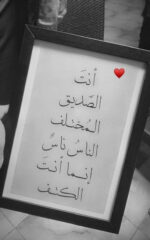 أنتَ
الصَّديق
المُختلف
الناسُ ناسٌ
إنما أنتَ
الكتف